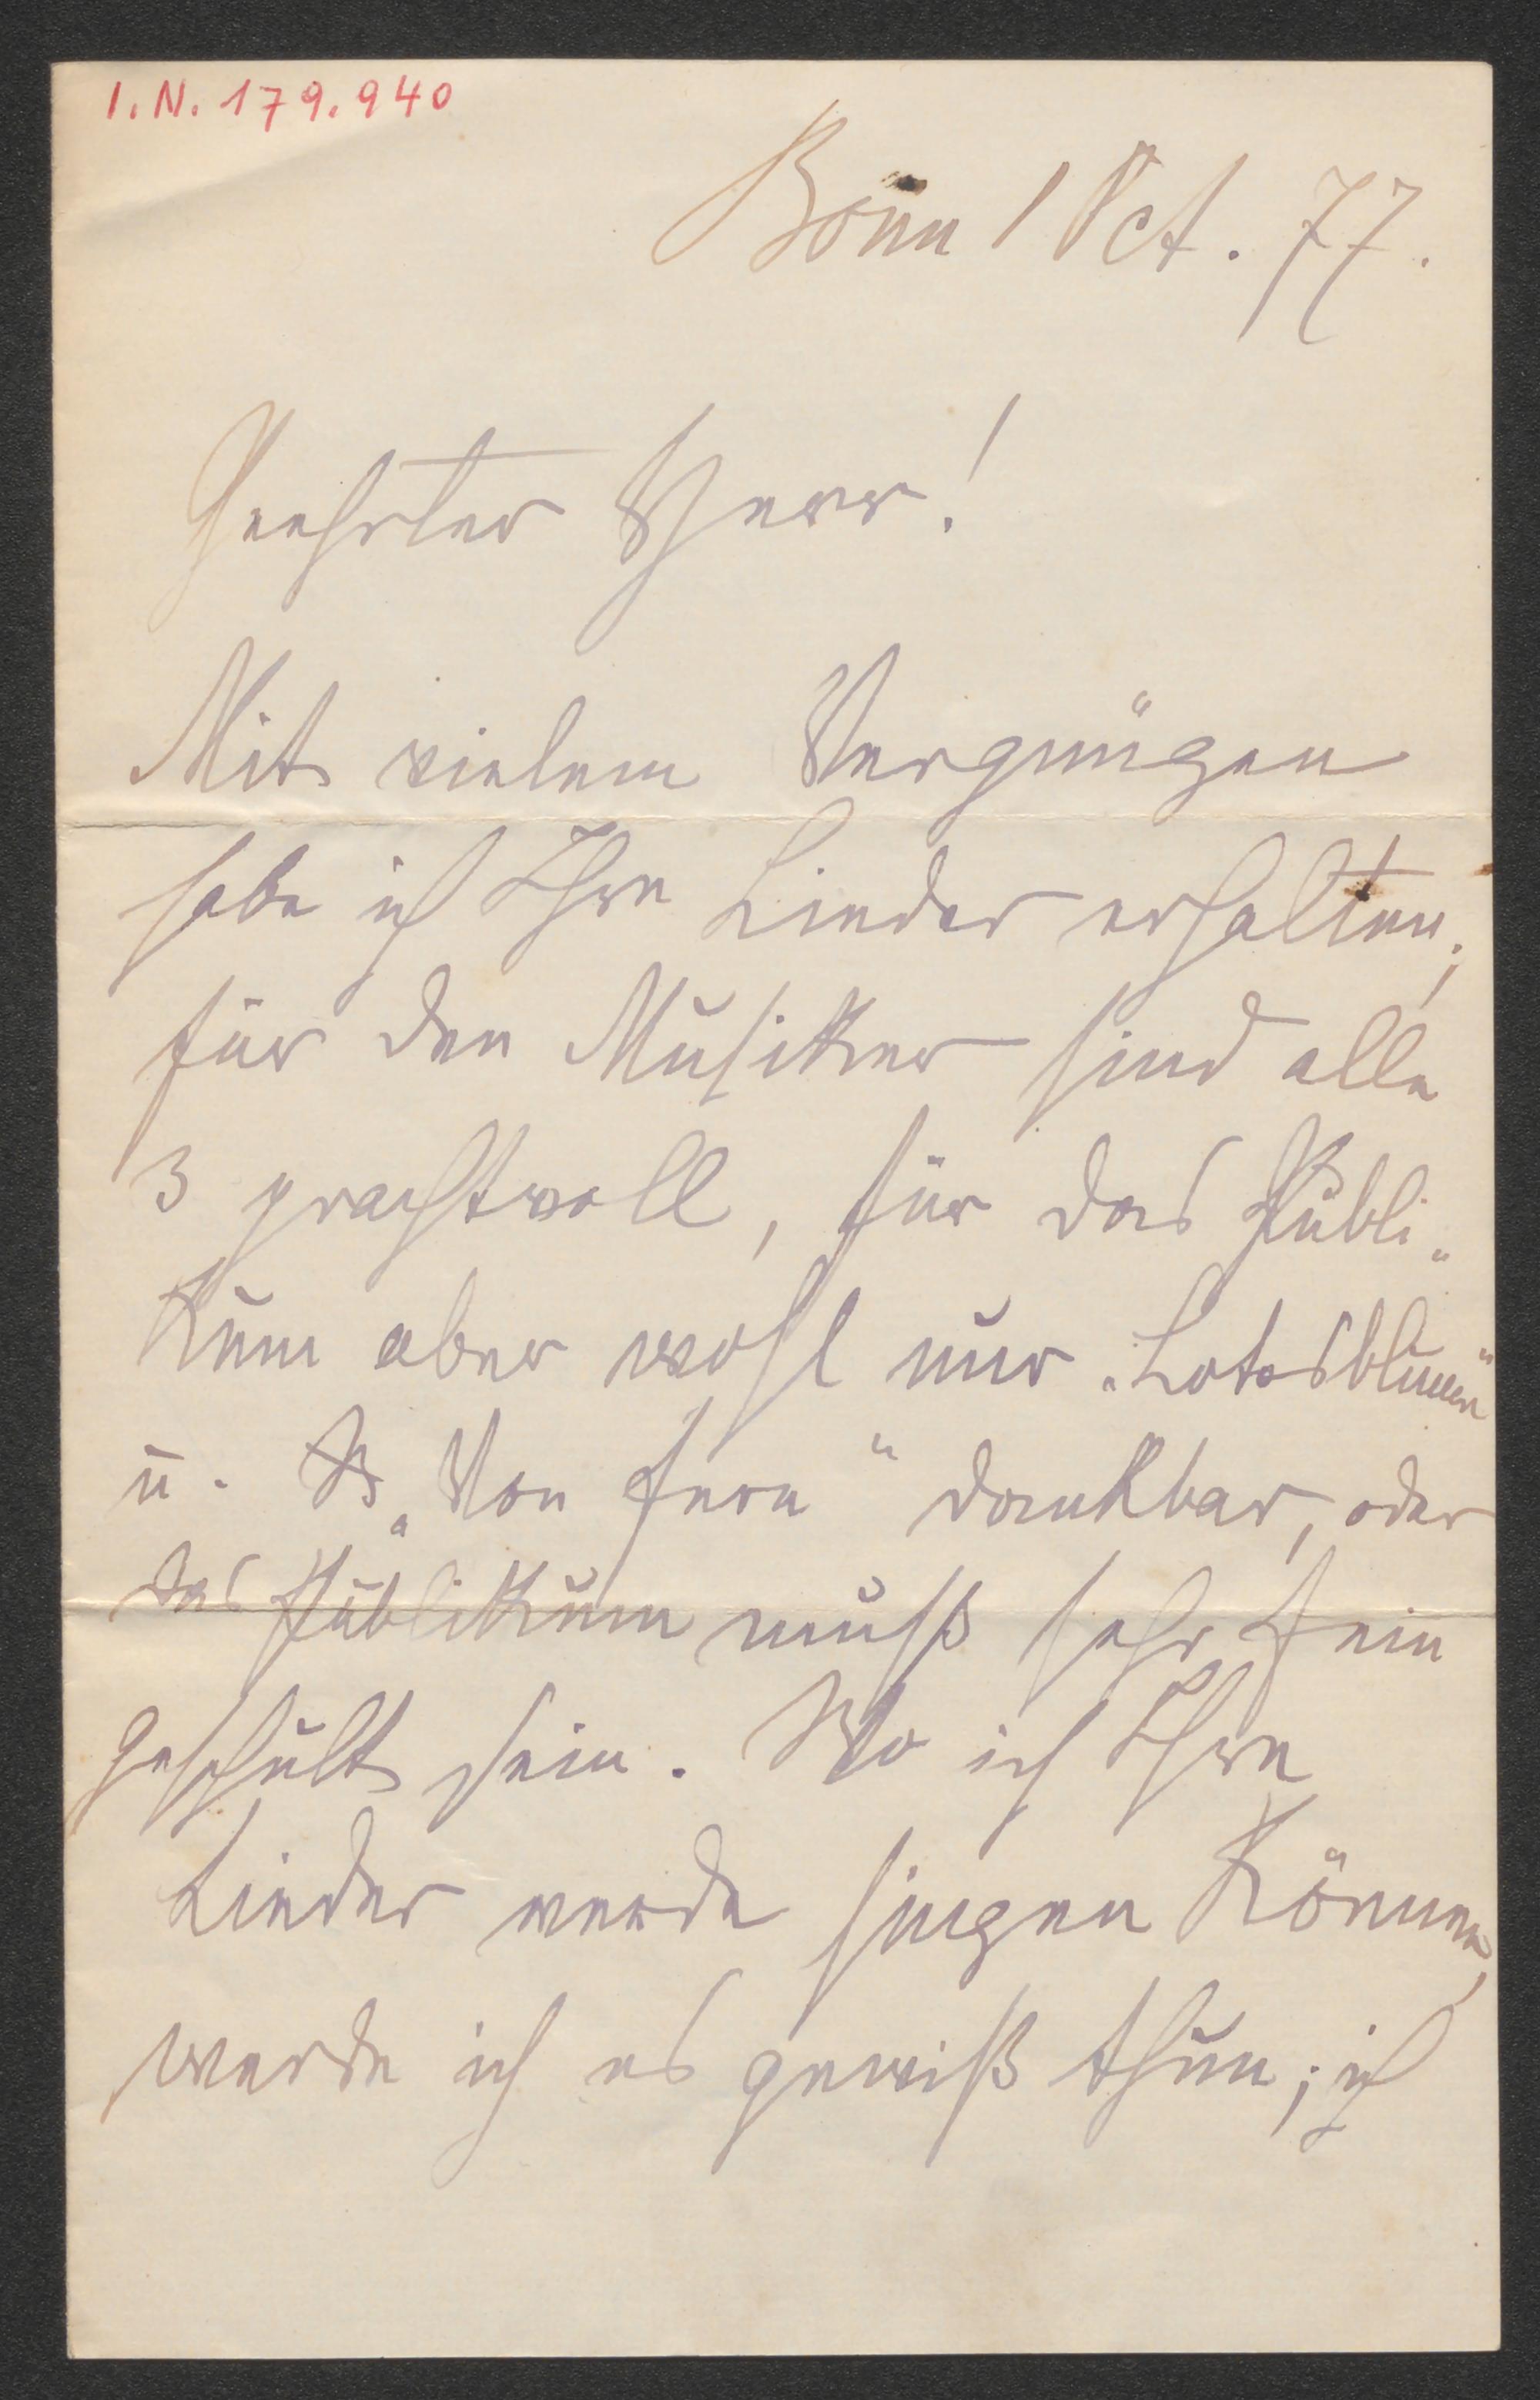 I.N. 179.940
Bonn 1 Oct. 77.
Geehrter Herr!
Mit vielem Vergnügen
habe ich Ihre Lieder erhalten;
für den Musiker sind alle
3 prachtvoll, für das Publi-
kum aber wohl nur „Lotosblumen“
u. „Von fern“ dankbar, oder
das Publikum muß sehr fein
geschult sein. Wo ich Ihre
Lieder werde singen können,
werde ich es gewiß thun; ich